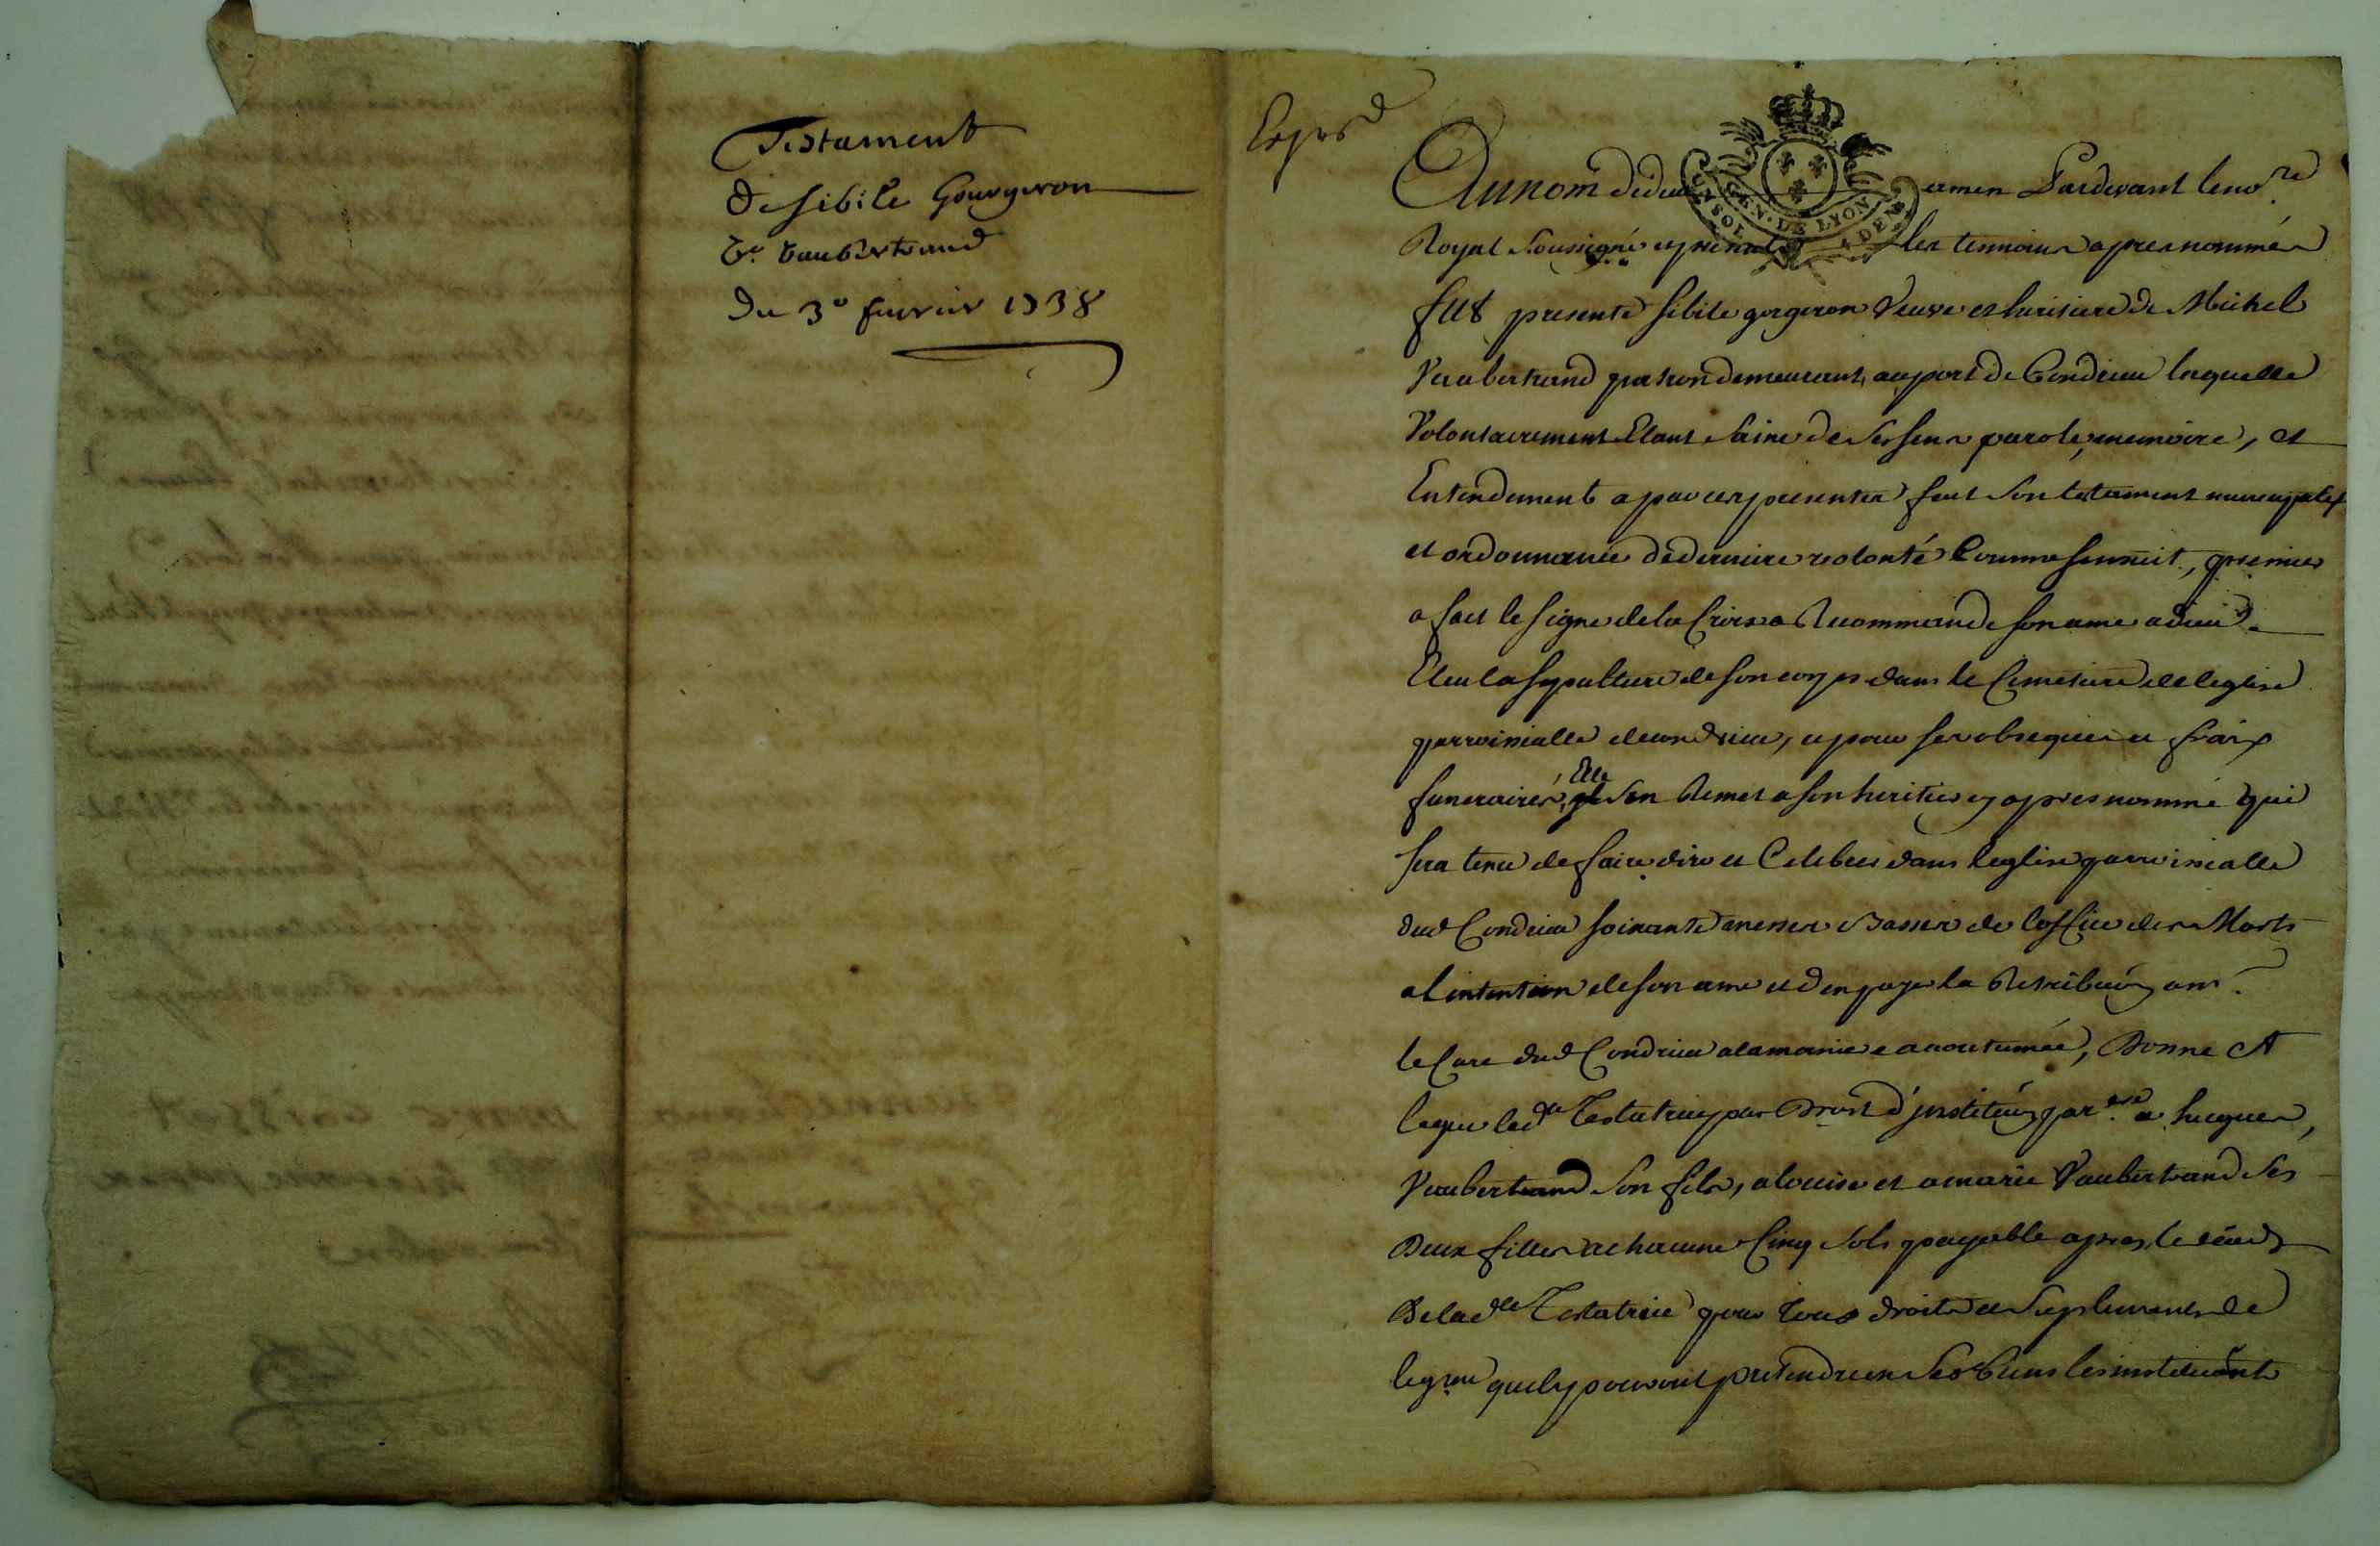 Testament
de sibile Gourgeron
Ve. vaubertrand
du 3e fevrier 1738
Exped
Au nom de dieu amen Pardevant le nore.
Royal soussigné et presents les temoins apres nommés
fut presente sibile gorgeron veuve et heritiere de Michel
Vaubertrand patron demeurant au port de Condrieu laquelle
Volontairement Etant saine de ses sens parole, memoire, et
Entendement a par ces presentes fait son tetament nuncupatif
et ordonnance de derniere volonté Comme sensuit, premier
a fait le signe de la Croix a Recommandé son ame a dieu
Eleu la sepulture de son corps dans le Cimetiere de leglise
parroissialle de condrieu, et pour ses obseques et fraix
funeraires, Elle sen Remet a son heritier cy apres nommé qui
sera tenu de faire dire et Celebrer dans leglise parroissialle
dud Condrieu soixante messes Basses de loffice des Morts
a lintention de son ame et den payer la Retribuon a mr.
le Cure dud Condrieu a la maniere accoutumée, Donne et
legue lade Testatrice par Droit d'jnstituon parre. a hugues,
Vaubertrand son fils, a louise et a marie Vaubertrand ses
Deux filles a chacune Cinq sols payable apres le deceds
De lade Testatrice pour tous droits et suplements de
legme quils pourront pretendre en ses biens les instituant
GEN. DE LYON
2 SOLS
4 DEN